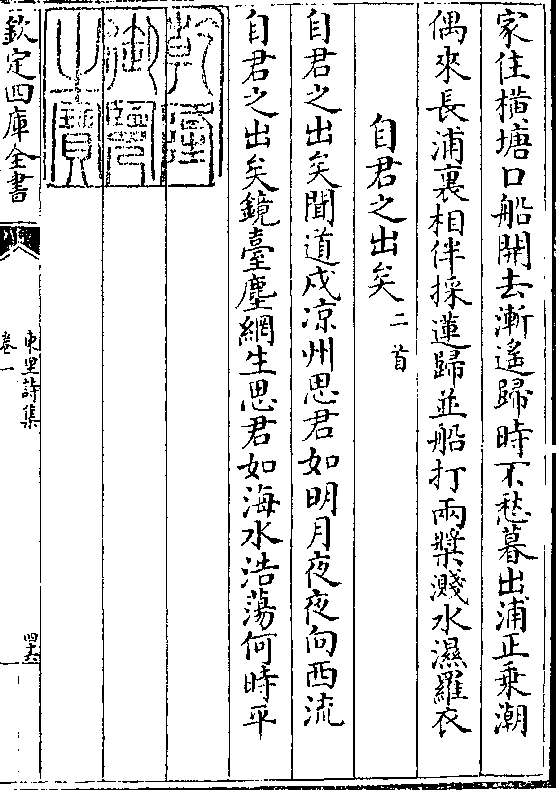 家住橫塘口船開去漸遙歸時不愁暮出浦正乗潮
偶來長浦裏相伴採蓮歸並船打兩槳濺水濕羅衣
自君之出矣二首
自君之出矣聞道戍凉州思君如明月夜夜向西流
自君之出矣鏡臺塵網生思君如海水浩蕩何時平
乾隆
御覽
之寶
欽定四庫全書
東里詩集
卷一
四六